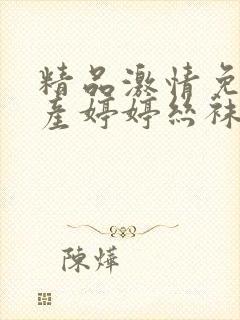 精品激情免
産婷婷丝袜
陳燁